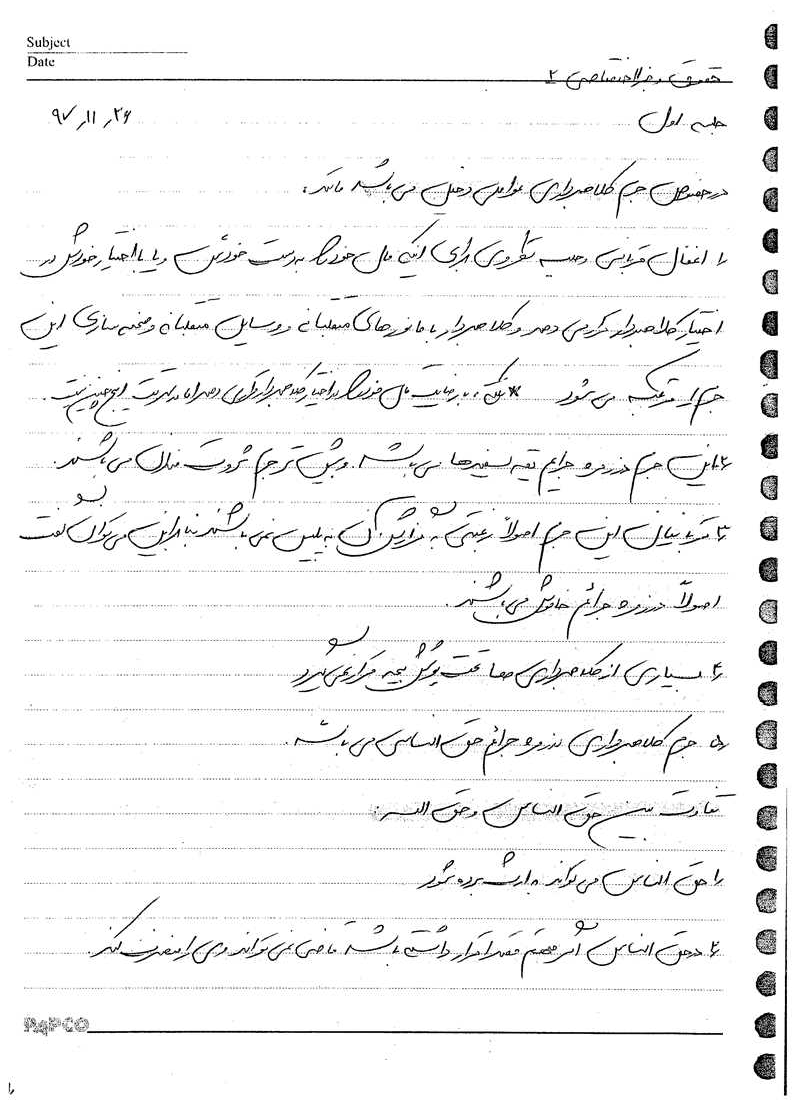 Subject
Date
حقوق جزا اختصاصی ۲
جلسه اول ۹۷٫۱۱٫۲۶
در خصوص جرم کلاهبرداری عواملی دخیل می باشد مانند:
۱٫ اغفال قربانی وسیله برای اینکه مال خود را به دست خودش و یا با اختیار خودش در
اختیار کلاهبردار قرار می دهد و کلاهبردار با مانورهای متقلبانه و وسایل متقلبانه و صحنه سازی این
جرم را مرتکب می شود * نکته: به رضایت مال خود را در اختیار کلاهبردار قرار می دهد اما در سرقت اینچنین نیست.
۲٫ این جرم در زمره جرایم یقه سفیدها می باشد. و بیشتر جرم ثروت مندان می باشند.
۳٫ قربانیان این جرم اصولاً رغبتی به گزارش آن به پلیس نمی باشند بنابراین می توان گفت
اصولاً در زمره جرائم خاموش می باشند.
۴٫ بسیاری از کلاهبرداری ها تحت پوشش بیمه قرار نمی گیرد
۵٫ جرم کلاهبرداری در زمره جرائم حق الناسی می باشد.
تفاوت بین حق الناس و حق الله:
۱٫ حق الناس می تواند به ارث برده شود
۲٫ در حق الناس اگر متهم قصد اقرار داشته باشد قاضی نمی تواند وی را منصرف کند.
PAPCO